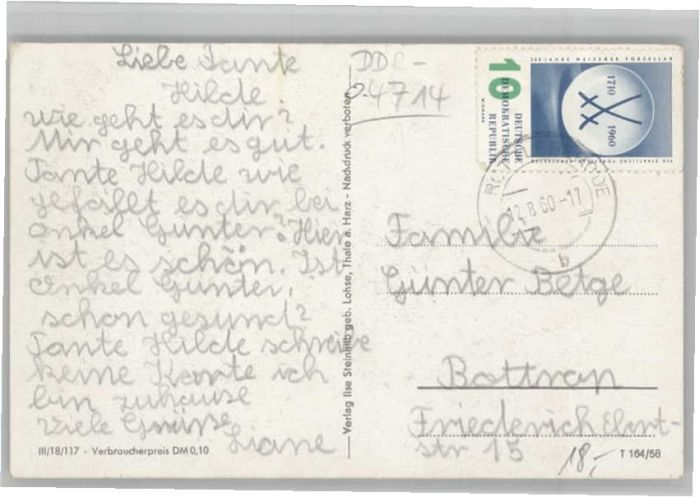 Liebe Tante
Hilde.
wie geht es dir?
Mir geht es gut.
Tante Hilde wie
gefällt es dir bei
onkel Günter? Hier
ist es schön. Ist
Onkel Günter,
schon gesund?
Tante Hilde schreibe
keine Karte ich
bin zuhause
viele Grüsse
Liane
III/18/117 - Verbraucherpreis DM 0,10
Verlag Ilse Steinhilb geb. Lohse, Thale a. Harz - Nachdruck verboten
DDR-
0-4714
250 JAHRE MEISSNER PORZELLAN
10
DEUTSCHE
DEMOKRATISCHE
REPUBLIK
1710
1960
12.8.60-17
b
Familie
Günter Betge
Bottran
Friederich Ebert-
str 15
18,-
T 164/58